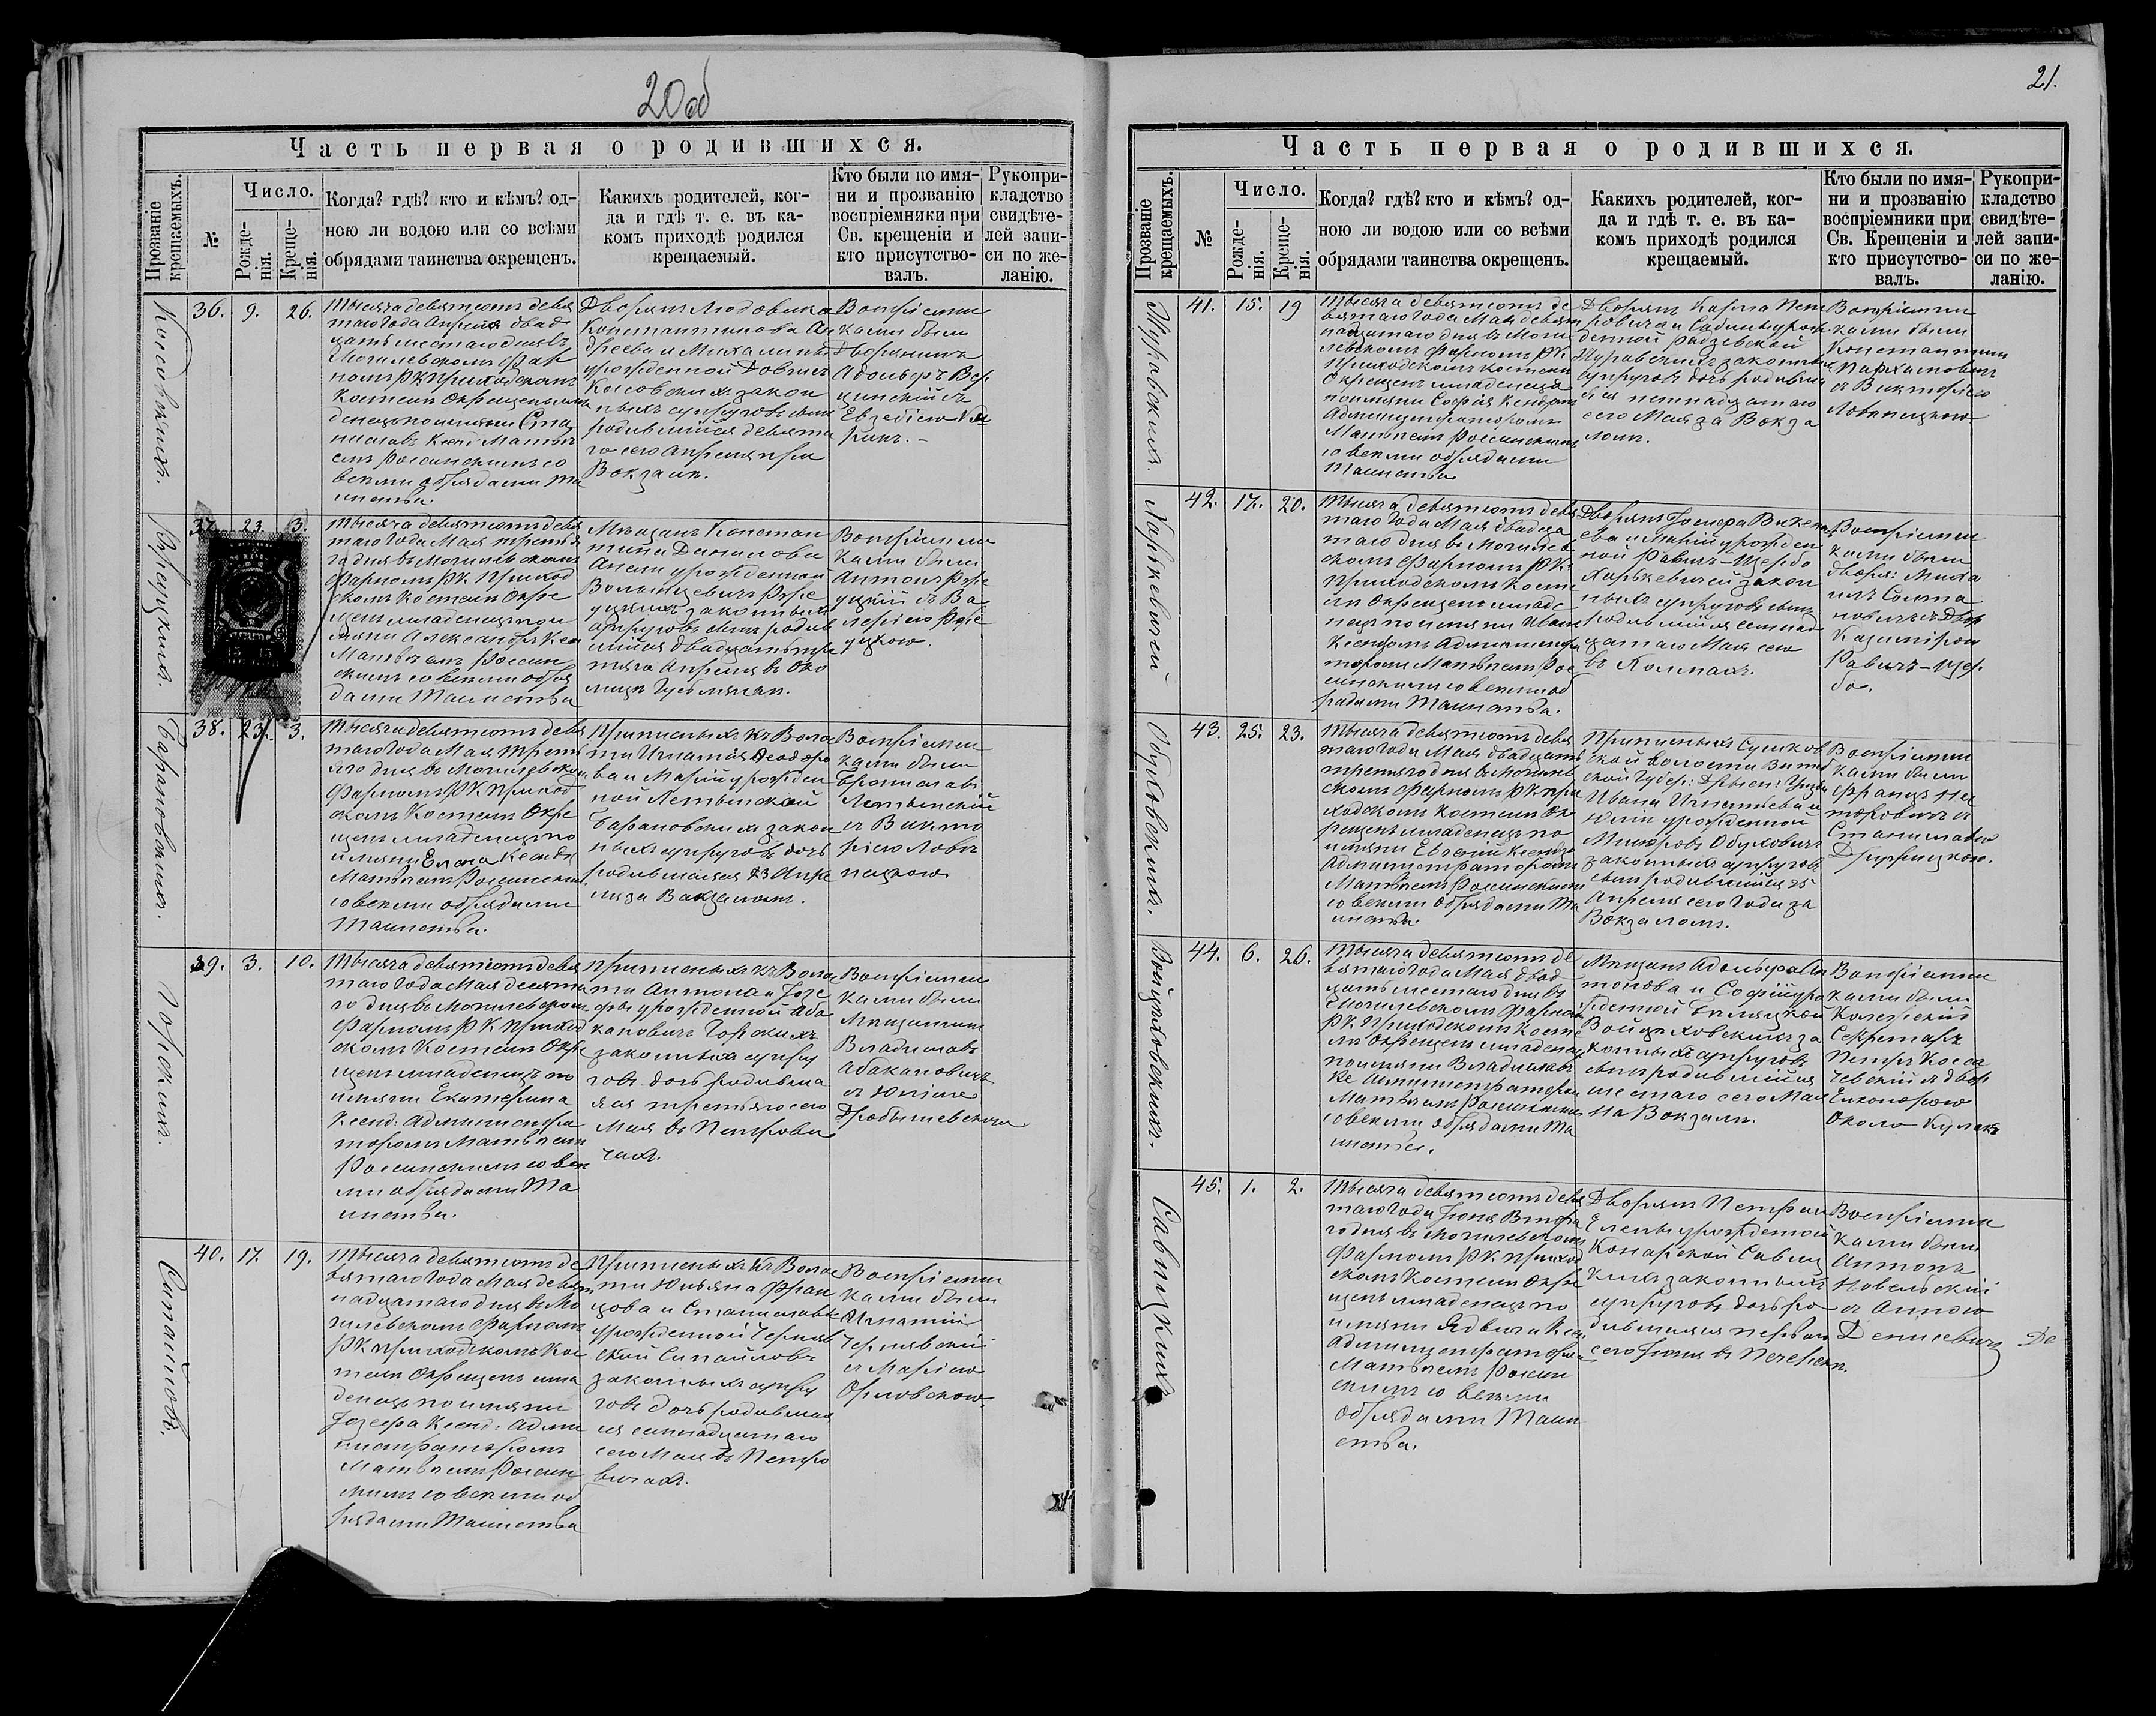 20 об
Часть первая о родившихся.
Прозваніе крещаемыхъ.
№
Число.
Рожденія.
Крещенія.
Когда? гдѣ? кто и кѣмъ? од-
ною ли водою или со всѣми
обрядами таинства окрещенъ.
Какихъ родителей, ког-
да и гдѣ т. е. въ ка-
комъ приходѣ родился
крещаемый.
Кто были по имя-
ни и прозванію
воспріемники при
Св. крещеніи и
кто присутство-
валъ.
Рукопри-
кладство
свидѣте-
лей запи-
си по же-
ланію.
36. 9. 26.
Тысяча девятсотъ девя
таго года Апрѣля двад
цать шестаго дня въ
Могилевскомъ Фар
номъ РК Приходскомъ
Костелѣ Окрещенъ мла
денецъ по имяни Ста
ниславъ Ксен. Матвѣ
емъ Россинскимъ со
всѣми обрядами Та
инства.
Дворянъ Людовика
Константинова Ан
дреева и Михалины
урожденной Довгиъ
законныхъ супруговъ сынъ
родившійся девята
го сего Апрѣля при
Вокзалѣ.
Воспріемни
ками были
Дворянинъ
Адольфъ Вер
цинскій съ
37. 23. 3.
Тысяча девятсотъ девя
таго года Мая третья
го дня въ Могилевскомъ
Фарномъ РК. Приход
скомъ Костелѣ Окре
щенъ младенецъ по и
мяни Александръ Ксен
Матвѣемъ Россин
скимъ со всѣми обря
дами Таинства
Мѣщанъ Констан
тина Данилова
урожденной
законныхъ
супруговъ сынъ родив
шійся двадцать тре
тяго Апрѣля въ Око
лицѣ
Воспріемни
ками были
Антонъ
съ Ва
леріею
38. 23. 3.
Барановскихъ.
Тысяча девятсотъ девя
таго года Мая Треть
яго дня въ Могилевском
Фарномъ РК. Приход
скомъ Костелѣ Окре
щенъ младенецъ по
имяни Елена Ксенд
Матвѣемъ Россинским
со всѣми обрядами
Таинства.
Приписныхъ къ Волос
ти Игнатія Ѳеодоро
ва и Маріи урожден
ной Летынской
Барановскихъ закон
ныхъ супруговъ дочь
родившаяся 23 Апрѣ
ля за Вокзаломъ.
Воспріемни
ками были
Брониславъ
Летынскій
съ Викто
ріею
39. 3. 10.
Горскихъ.
Тысяча девятсотъ девя
таго года Мая десята
го дня въ Могилевском
Фарномъ РК Приход
скомъ Костелѣ Окре
щенъ младенецъ по
имяни Екатерина
Ксенд: Администра
торомъ Матвѣемъ
Россинскимъ со всѣ
ми обрядами Та
инства.
Приписныхъ къ Волос
ти Антона и Іозе
фы урожденной Аба
кановичъ Горскихъ
законныхъ супру
говъ дочь родивша
яся третьяго сего
Мая въ Петрови
чахъ.
Воспріемни
ками были
Мѣщанинъ
Владиславъ
Абакановичъ
съ Юліею
Дробышевскою
40. 17. 19.
Сипайловъ.
Тысяча девятсотъ де
вятаго года Мая девят
надцатаго дня въ Мо
гилевскомъ Фарномъ
РК приходскомъ Кос
телѣ Окрещенъ мла
денецъ по имяни
Іозефа Ксенд: Адми
нистраторомъ
Матвѣемъ Россин
скимъ со всѣми об
рядами Таинства
Приписныхъ къ Волос
ти Юльяна Фран
цова и Станиславы
урожденной Черняв
ской Сипайловъ
законныхъ супру
говъ дочь родивша
яся семнадцатаго
сего Мая въ Петро
вичахъ.
Воспріемни
ками были
Игнатій
Чернявскій
съ Маріею
Орловскою
21.
Часть первая о родившихся.
Прозваніе крещаемыхъ.
№
Число.
Рожденія.
Крещенія.
Когда? гдѣ? кто и кѣмъ? од-
ною ли водою или со всѣми
обрядами таинства окрещенъ.
Какихъ родителей, ког-
да и гдѣ т. е. въ ка-
комъ приходѣ родился
крещаемый.
Кто были по имя-
ни и прозванію
воспріемники при
Св. Крещеніи и
кто присутство-
валъ.
Рукопри-
кладство
свидѣте-
лей запи-
си по же-
ланію.
41. 15. 19
Журавскихъ.
Тысяча девятсотъ де
вятаго года Мая девят
надцатаго дня въ Моги
левскомъ Фарномъ РК.
Приходскомъ Костелѣ
Окрещенъ младенецъ
по имяни Софія Ксендз
Администраторомъ
Матвѣемъ Россинскимъ
со всѣми обрядами
Таинства
Дворянъ Карла Пет
ровича и урож
денной
Журавскихъ законныхъ
супруговъ дочь родивша
яся пятнадцатаго
сего Мая за Вокза
ломъ.
Воспріемни
ками были
Константинъ
Пархамовичъ
съ Викторіею
42. 17. 20.
Харкевичей
Тысяча девятсотъ девя
таго года Мая двадца
таго дня въ Могилев
скомъ Фарномъ РК.
Приходскомъ Косте
лѣ Окрещенъ младе
нецъ по имяни Иванъ
Ксендзомъ Администра
торомъ Матвѣемъ Рос
синскимъ со всѣми об
рядами Таинства.
Дворянъ Іосифа Викен
ева и Маріи урожден
ной Равичъ-Щербо
Харькевичей закон
ныхъ супруговъ сынъ
родившійся семнад
цатаго Мая сего
въ
Воспріемни
ками были
дворя: Миха
илъ Солта
новичъ съ Двор
Казимірою
Равичъ-Щер
бо.
43. 25. 23.
Обуховскихъ.
Тысяча девятсотъ девя
таго года Мая двадцать
третяго дня въ Могилев
скомъ Фарномъ РК при
ходскомъ Костелѣ Ок
рещенъ младенецъ по
имяни Евгеній Ксендз
Администраторомъ
Матвѣемъ Россинскимъ
со всѣми обрядами Та
инства.
Приписныхъ
ской Волости Витеб
ской Губер: Дрисен: Уѣзда
Ивана Игнатьева и
Юліи урожденной
законныхъ супруговъ
сынъ родившійся 25
Апрѣля сего года за
Вокзаломъ.
Воспріемни
ками были
Францъ
съ
Станиславою
44. 6. 26.
Войцѣховскихъ.
Тысяча девятсотъ де
вятаго года Мая двад
цать шестаго дня въ
Могилевскомъ Фарном
РК. Приходскомъ Косте
лѣ Окрещенъ младенец
по имяни Владиславъ
Кс Администратором
Матвѣемъ Россинским
со всѣми обрядами Та
инства.
Мѣщанъ Адольфа Ан
тонова и Софіи уро
жденной Бѣляцкой
Войцѣховскихъ за
конныхъ супруговъ
сынъ родившійся
шестаго сего Мая
на Вокзалѣ.
Воспріемни
ками были
Колежскій
Секретарь
Петръ Косса
чевскій съ двор
Еленорою
Около Кулакъ
45. 1. 2.
Савицкихъ
Тысяча девятсотъ девя
таго года Іюня Втора
го дня въ Могилевском
Фарномъ РК приход
скомъ Костелѣ Окре
щенъ младенецъ по
имяни Ядвига Ксен
Администратором
Матвѣемъ Россин
скимъ со всѣми
обрядами Таин
ства.
Дворянъ Петра и
Елены урожденной
Конарской Савиц
кихъ законныхъ
супруговъ дочь ро
дившаяся перваго
сего Іюня въ Печерскѣ.
Воспріемни
ками были
Антонъ
Новельскій
съ Анною
Денисевичъ